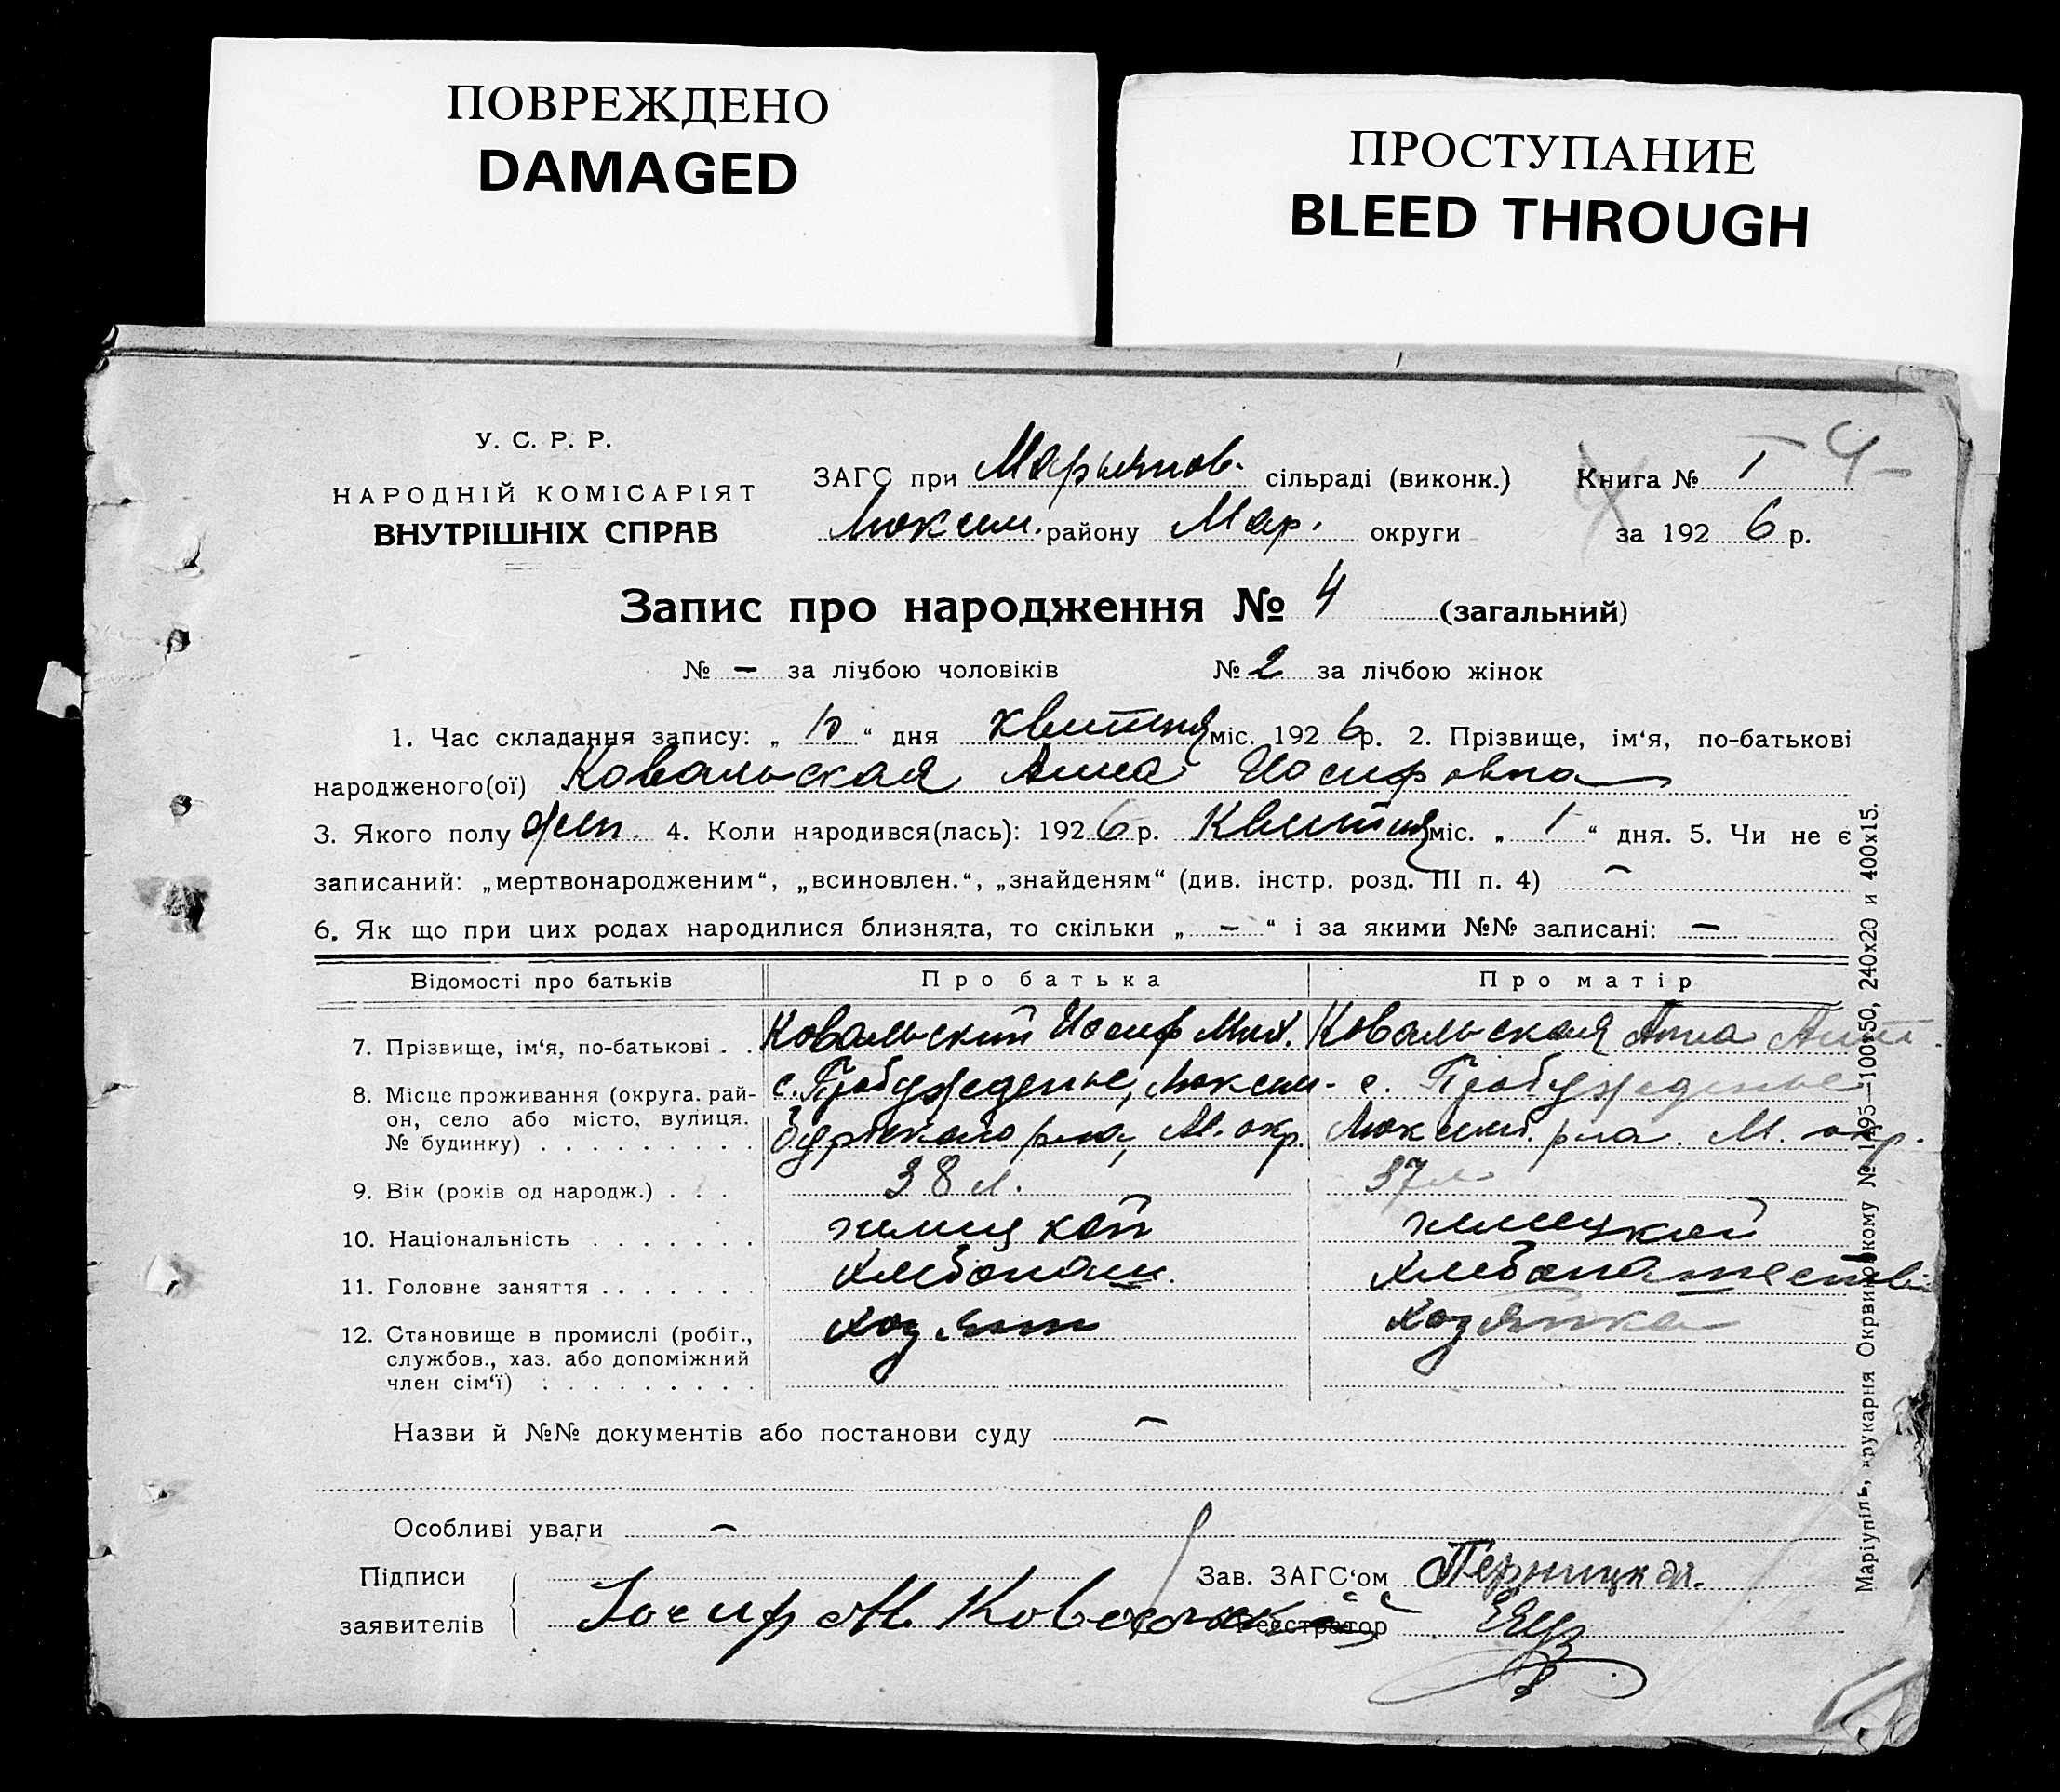 ПОВРЕЖДЕНО
DAMAGED
ПРОСТУПАНИЕ
BLEED THROUGH
У. С. Р. Р.
НАРОДНІЙ КОМІСАРІЯТ
ВНУТРІШНІХ СПРАВ
ЗАГС при Марьянов. сільраді (виконк.)
Люксем. району Мар. округи
Книга № I 4
за 1926 р.
Запис про народження № 4 (загальний)
№ — за лічбою чоловіків № 2 за лічбою жінок
1. Час складання запису: „ 10 “ дня квитня міс. 1926 р. 2. Прізвище, ім‘я, по-батькові
народженого(ої) Ковальская Анна Иосифовна
3. Якого полу жен. 4. Коли народився(лась): 1926 р. Квитня міс. „ 1 “ дня. 5. Чи не є
записаний: „мертвонародженим“, „всиновлен.“, „знайденям“ (див. інстр. розд. III п. 4) —
6. Як що при цих родах народилися близнята, то скільки „ — “ і за якими №№ записані: —
Відомості про батьків Про батька Про матір
7. Прізвище, ім‘я, по-батькові . . Ковальский Иосиф Мих. Ковальская Анна Ант.
8. Місце проживання (округа. рай- с. Пробужденье, Люксем- с. Пробужденье
он, село або місто, вулиця. бургского р-на, М. окр. Люксемб. р-на. М. окр.
№ будинку) . . . . . . . . .
9. Вік (років од народж.) . . . 38 л. 37 л.
10. Національність . . . . . . .
11. Головне заняття . . . . . . . хлебопаш.
12. Становище в промислі (робіт., хозяин хозяйка
службов., хаз. або допоміжний
член сім‘ї) . . . . . . . . .
Назви й №№ документів або постанови суду —
Особливі уваги —
Підписи
заявителів
Іосиф М Ковальский
Зав. ЗАГС‘ом
Реєстратор
Маріупіль, друкарня Окрвиконкому № 1495—100х50, 240х20 и 400х15.